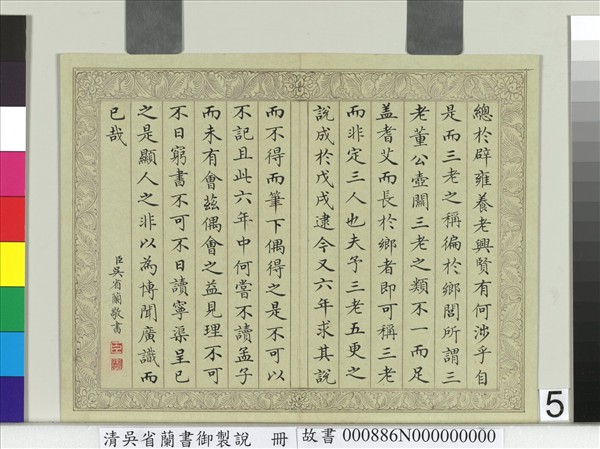 總於辟雍養老興賢有何涉乎自
是而三老之稱徧於鄉閭所謂三
老董公壺關三老之類不一而足
盖耆艾而長於鄉者即可稱三老
而非定三人也夫予三老五更之
說成於戊戌逮今又六年求其說
而不得而筆下偶得之是不可以
不記且此六年中何嘗不讀孟子
而未有會茲偶會之益見理不可
不日窮書不可不日讀寧渠呈已
之是顯人之非以為博聞廣識而
已哉
臣吳省蘭敬書
5
清吳省蘭書御製說 冊
故書 000886N000000000